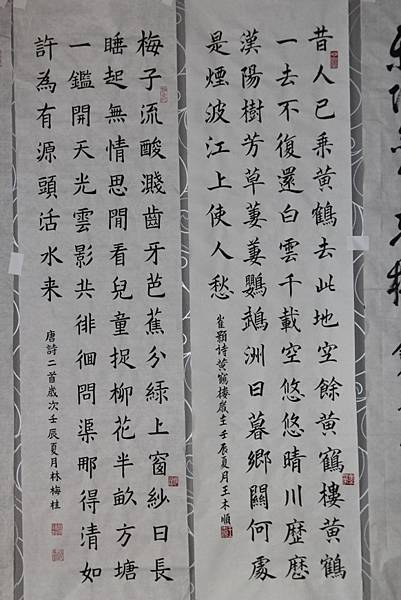 昔人已乘黃鶴去此地空餘黃鶴樓黃鶴
一去不復還白雲千載空悠悠晴川歷歷
漢陽樹芳草萋萋鸚鵡洲日暮鄉關何處
是煙波江上使人愁
崔顥诗黃鶴樓歲壬辰夏月王木順
梅子流酸濺齒牙芭蕉分綠上窗紗日長
睡起無情思閒看兒童捉柳花半畝方塘
一鑑開天光雲影共徘徊問渠那得清如
許為有源頭活水来
唐詩二首歲次壬辰夏月林梅桂